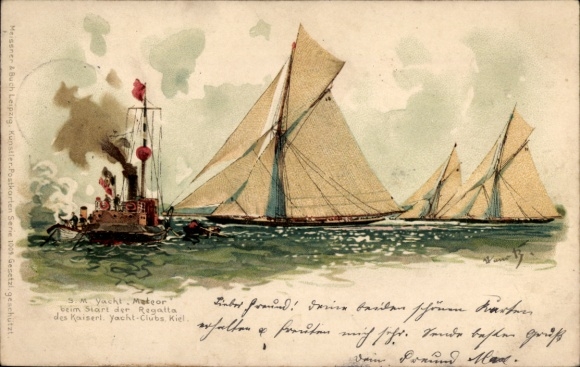 Meissner & Buch Leipzig. Künstler-Postkarten Serie 1019. Gesetzl. geschützt
S. M. Yacht "Meteor"
beim Start der Regatta
des Kaiserl. Yacht-Clubs Kiel.
Lieber Freund! deine beiden schönen Karten
erhalten & freuten mich sehr. Sende besten Gruß
dein Freund Max.